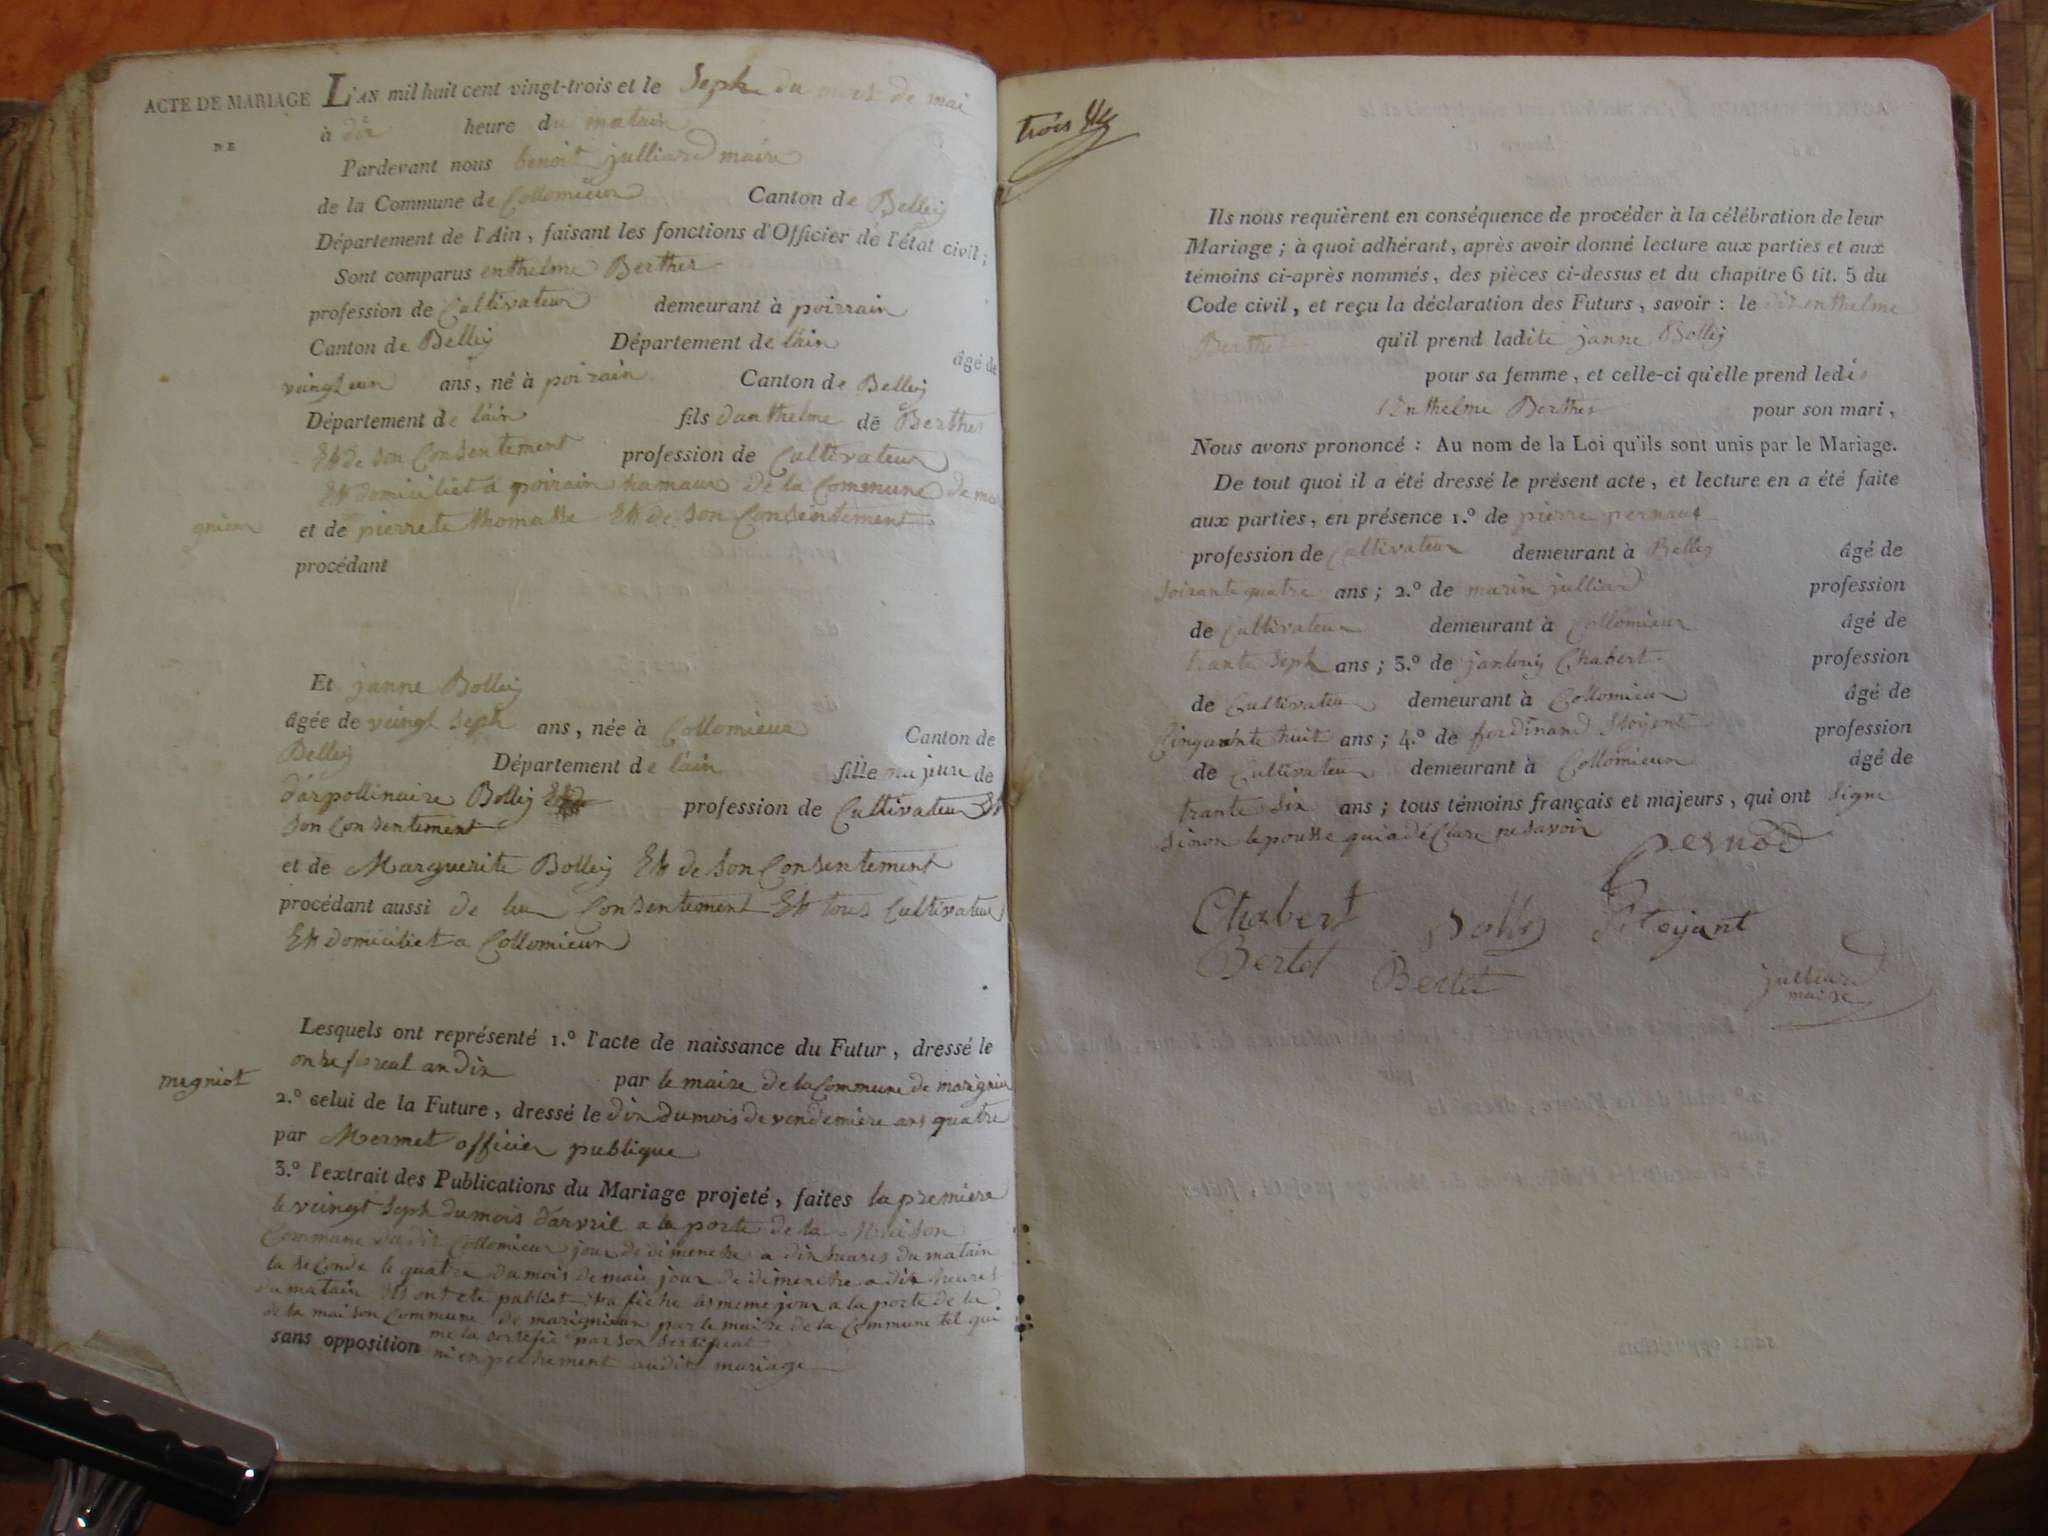 ACTE DE MARIAGE
DE
L'AN mil huit cent vingt-trois et le Seph du mois de mai
à dix heure du matain
Pardevant nous benoit julliard maire
de la Commune de Collomieux Canton de Belley
Département de l'Ain, faisant les fonctions d'Officier de l'état civil;
Sont comparus enthelme Berthet
profession de Cultivateur demeurant à poirrain
Canton de Belley Département de l'ain âgé de
veingt eun ans, né à poirain Canton de Belley
Département de l'ain fils danthelme de Berthet
Et de son Consentement profession de Cultivateur
Et domiciliet a poirain hamaux de la Commune de ma
gnieu et de pierrete thomasse Et de son Consentement
procédant
Et janne Bolley
âgée de veingt Seph ans, née à Collomieux Canton de
Belley Département de l'ain fille majeure de
d'arpollinaire Bolley profession de Cultivateur Et
son Consentement
et de Marguerite Bolley Et de son Consentement
procédant aussi de leur Consentement Et tous Cultivateur
Et domiciliet a Collomieux
Lesquels ont représenté 1.º l'acte de naissance du Futur, dressé le
onze floreal an dix par le maire de la Commune de marignieu
megniot
2.º celui de la Future, dressé le dix du mois de vendemiere ans quatre
par Mermet officier publique
3.º l'extrait des Publications du Mariage projeté, faites la premiere
le veingt Seph du mois d'arvril a la porte de la Maison
Commune dudit Collomieux jour de dimenche a dix heures du matain
la seconde le quatre du mois de mai jour de dimenche a dix heures
du matain Et ont ete publiet a fiche as meme jour a la porte de la
de la maison Commune de marignieu par le maire de la Commune tel qui
me la sertefié par son sertificat
sans opposition ni enpechement audit mariage
trois
Ils nous requièrent en conséquence de procéder à la célébration de leur
Mariage; à quoi adhérant, après avoir donné lecture aux parties et aux
témoins ci-après nommés, des pièces ci-dessus et du chapitre 6 tit. 5 du
Code civil, et reçu la déclaration des Futurs, savoir: le dit enthelme
Berthet qu'il prend ladite janne Bolley
pour sa femme, et celle-ci qu'elle prend ledi
t Enthelme Berthet pour son mari,
Nous avons prononcé: Au nom de la Loi qu'ils sont unis par le Mariage.
De tout quoi il a été dressé le présent acte, et lecture en a été faite
aux parties, en présence 1.º de pierre pernaut
profession de Cultivateur demeurant à Belley âgé de
soixante quatre ans; 2.º de marin julliard profession
de Cultivateur demeurant à Collomieux âgé de
trante seph ans; 3.º de janlouis Chabert profession
de Cultivateur demeurant à Collomieux âgé de
Cinquante huit ans; 4.º de ferdinand stoyent profession
de Cultivateur demeurant à Collomieux âgé de
trante six ans; tous témoins français et majeurs, qui ont signe
sinon lepousse qui a déClare ne savoir
Pernod
Chabert Bolley Stoyant
Bertet Bertet julliard
maire